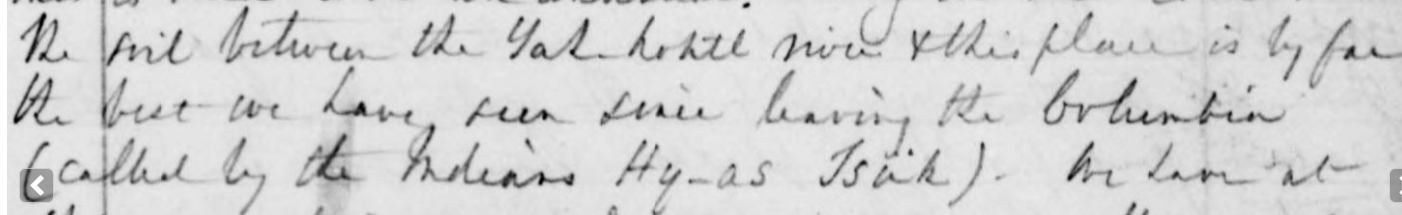 the soil between the Yah-kohtl river & this place is by far
the best we have seen since leaving the Columbia
(called by the Indians Hy-as Tsuk). We have at